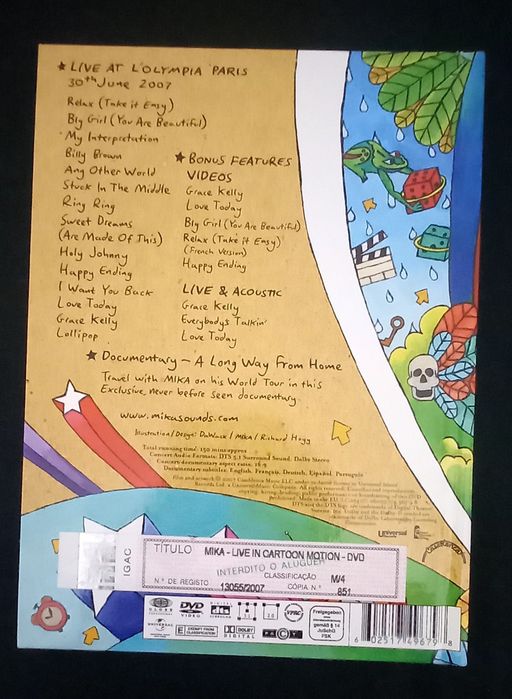 ★ LIVE AT L'OLYMPIA PARIS
30th June 2007
Relax (Take it Easy)
Big Girl (You Are Beautiful)
My Interpretation
Billy Brown
Any Other World
Stuck In The Middle
Ring Ring
Sweet Dreams
(Are Made Of This)
Holy Johnny
Happy Ending
I Want You Back
Love Today
Grace Kelly
Lollipop
★ BONUS FEATURES
VIDEOS
Grace Kelly
Love Today
Big Girl (You Are Beautiful)
Relax (Take it Easy)
(French Version)
Happy Ending
LIVE & ACOUSTIC
Grace Kelly
Everybody's Talkin'
Love Today
★ Documentary – A Long Way From Home
Travel with MIKA on his World Tour in this
Exclusive, never before seen documentary.
www.mikasounds.com
Illustration / Design: DaWack / MIKA / Richard Hogg
Total running time: 150 mins approx
Concert Audio Formats: DTS 5.1 Surround Sound. Dolby Stereo
Concert/documentary aspect ratio: 16:9
Documentary subtitles: English, Français, Deutsch, Español, Português
universal
IGAC
TÍTULO MIKA - LIVE IN CARTOON MOTION - DVD
INTERDITO O ALUGUER
CLASSIFICAÇÃO M/4
N.º DE REGISTO 13055/2007 CÓPIA N.º 851
DVD
VIDEO
dts
UNIVERSAL
E EXEMPT FROM CLASSIFICATION
DOLBY
DIGITAL
Freigegeben
gemäß § 14
JuSchG
FSK
6 02517 49679 8